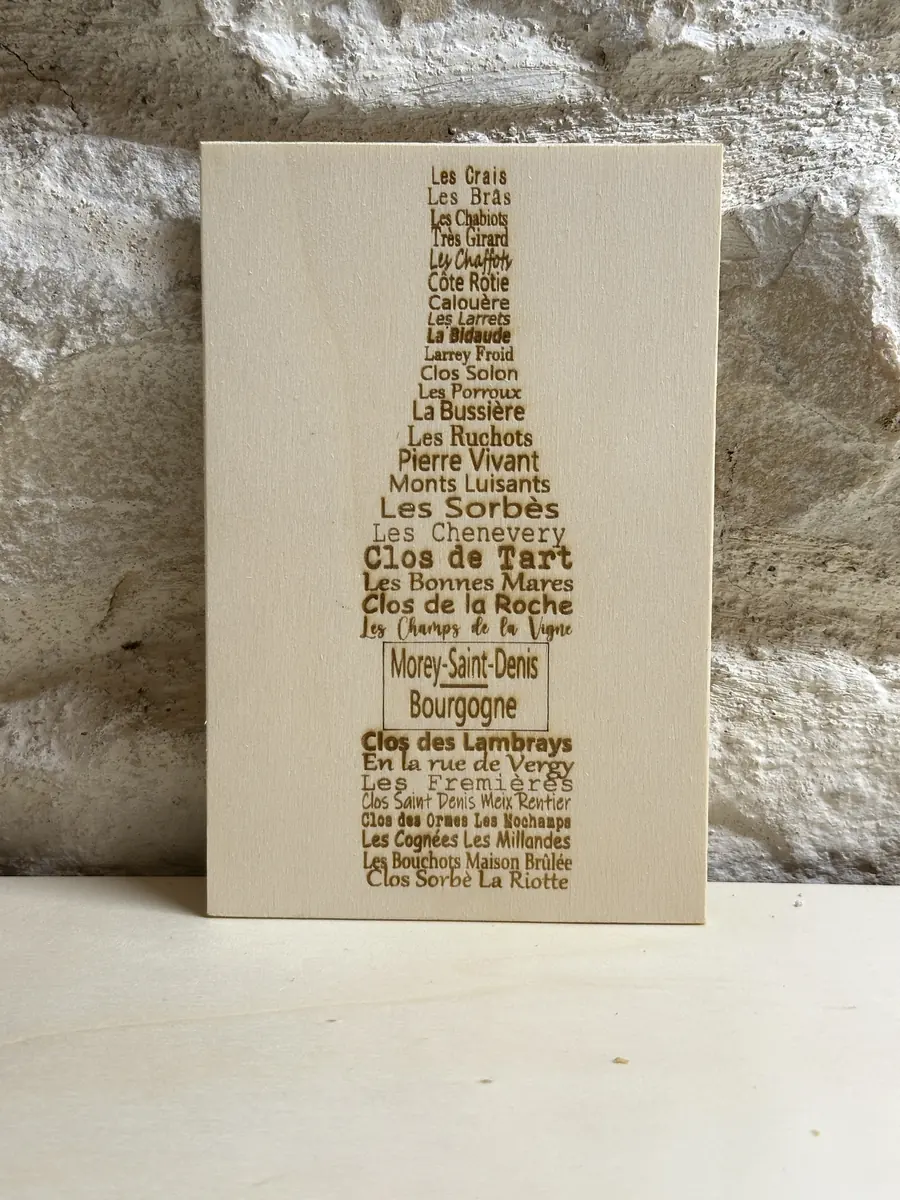 Les Crais
Les Brâs
Les Chabiots
Très Girard
Les Chaffots
Côte Rôtie
Calouère
Les Larrets
La Bidaude
Larrey Froid
Clos Solon
Les Porroux
La Bussière
Les Ruchots
Pierre Vivant
Monts Luisants
Les Sorbès
Les Chenevery
Clos de Tart
Les Bonnes Mares
Clos de la Roche
Les Champs de la Vigne
Morey-Saint-Denis
Bourgogne
Clos des Lambrays
En la rue de Vergy
Les Fremières
Clos Saint Denis Meix Rentier
Clos des Ormes Les Nochamps
Les Cognées Les Millandes
Les Bouchots Maison Brûlée
Clos Sorbè La Riotte